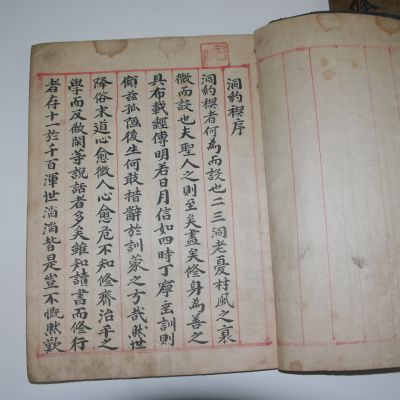 洞約稧序
洞約稧者何為而設也二三洞老憂村風之衰
微而設也夫聖人之則至矣盡矣修身為善之
具布載經傳明若日月信如四時丁寧垂訓則
顧玆孤陋後生何敢措辭於訓蒙之方哉然世
降俗末道心愈微人心愈危不知修齊治平之
學而反做閑等說話者多矣雖知讀書而修行
者存十一於千百渾世滔滔皆是豈不慨然歎